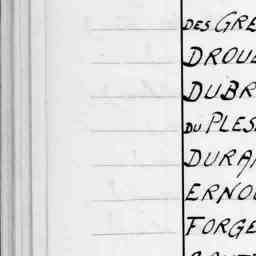 DES GRE
DROUE
DUBR
DU PLES
DURAN
ERNOU
FORGE